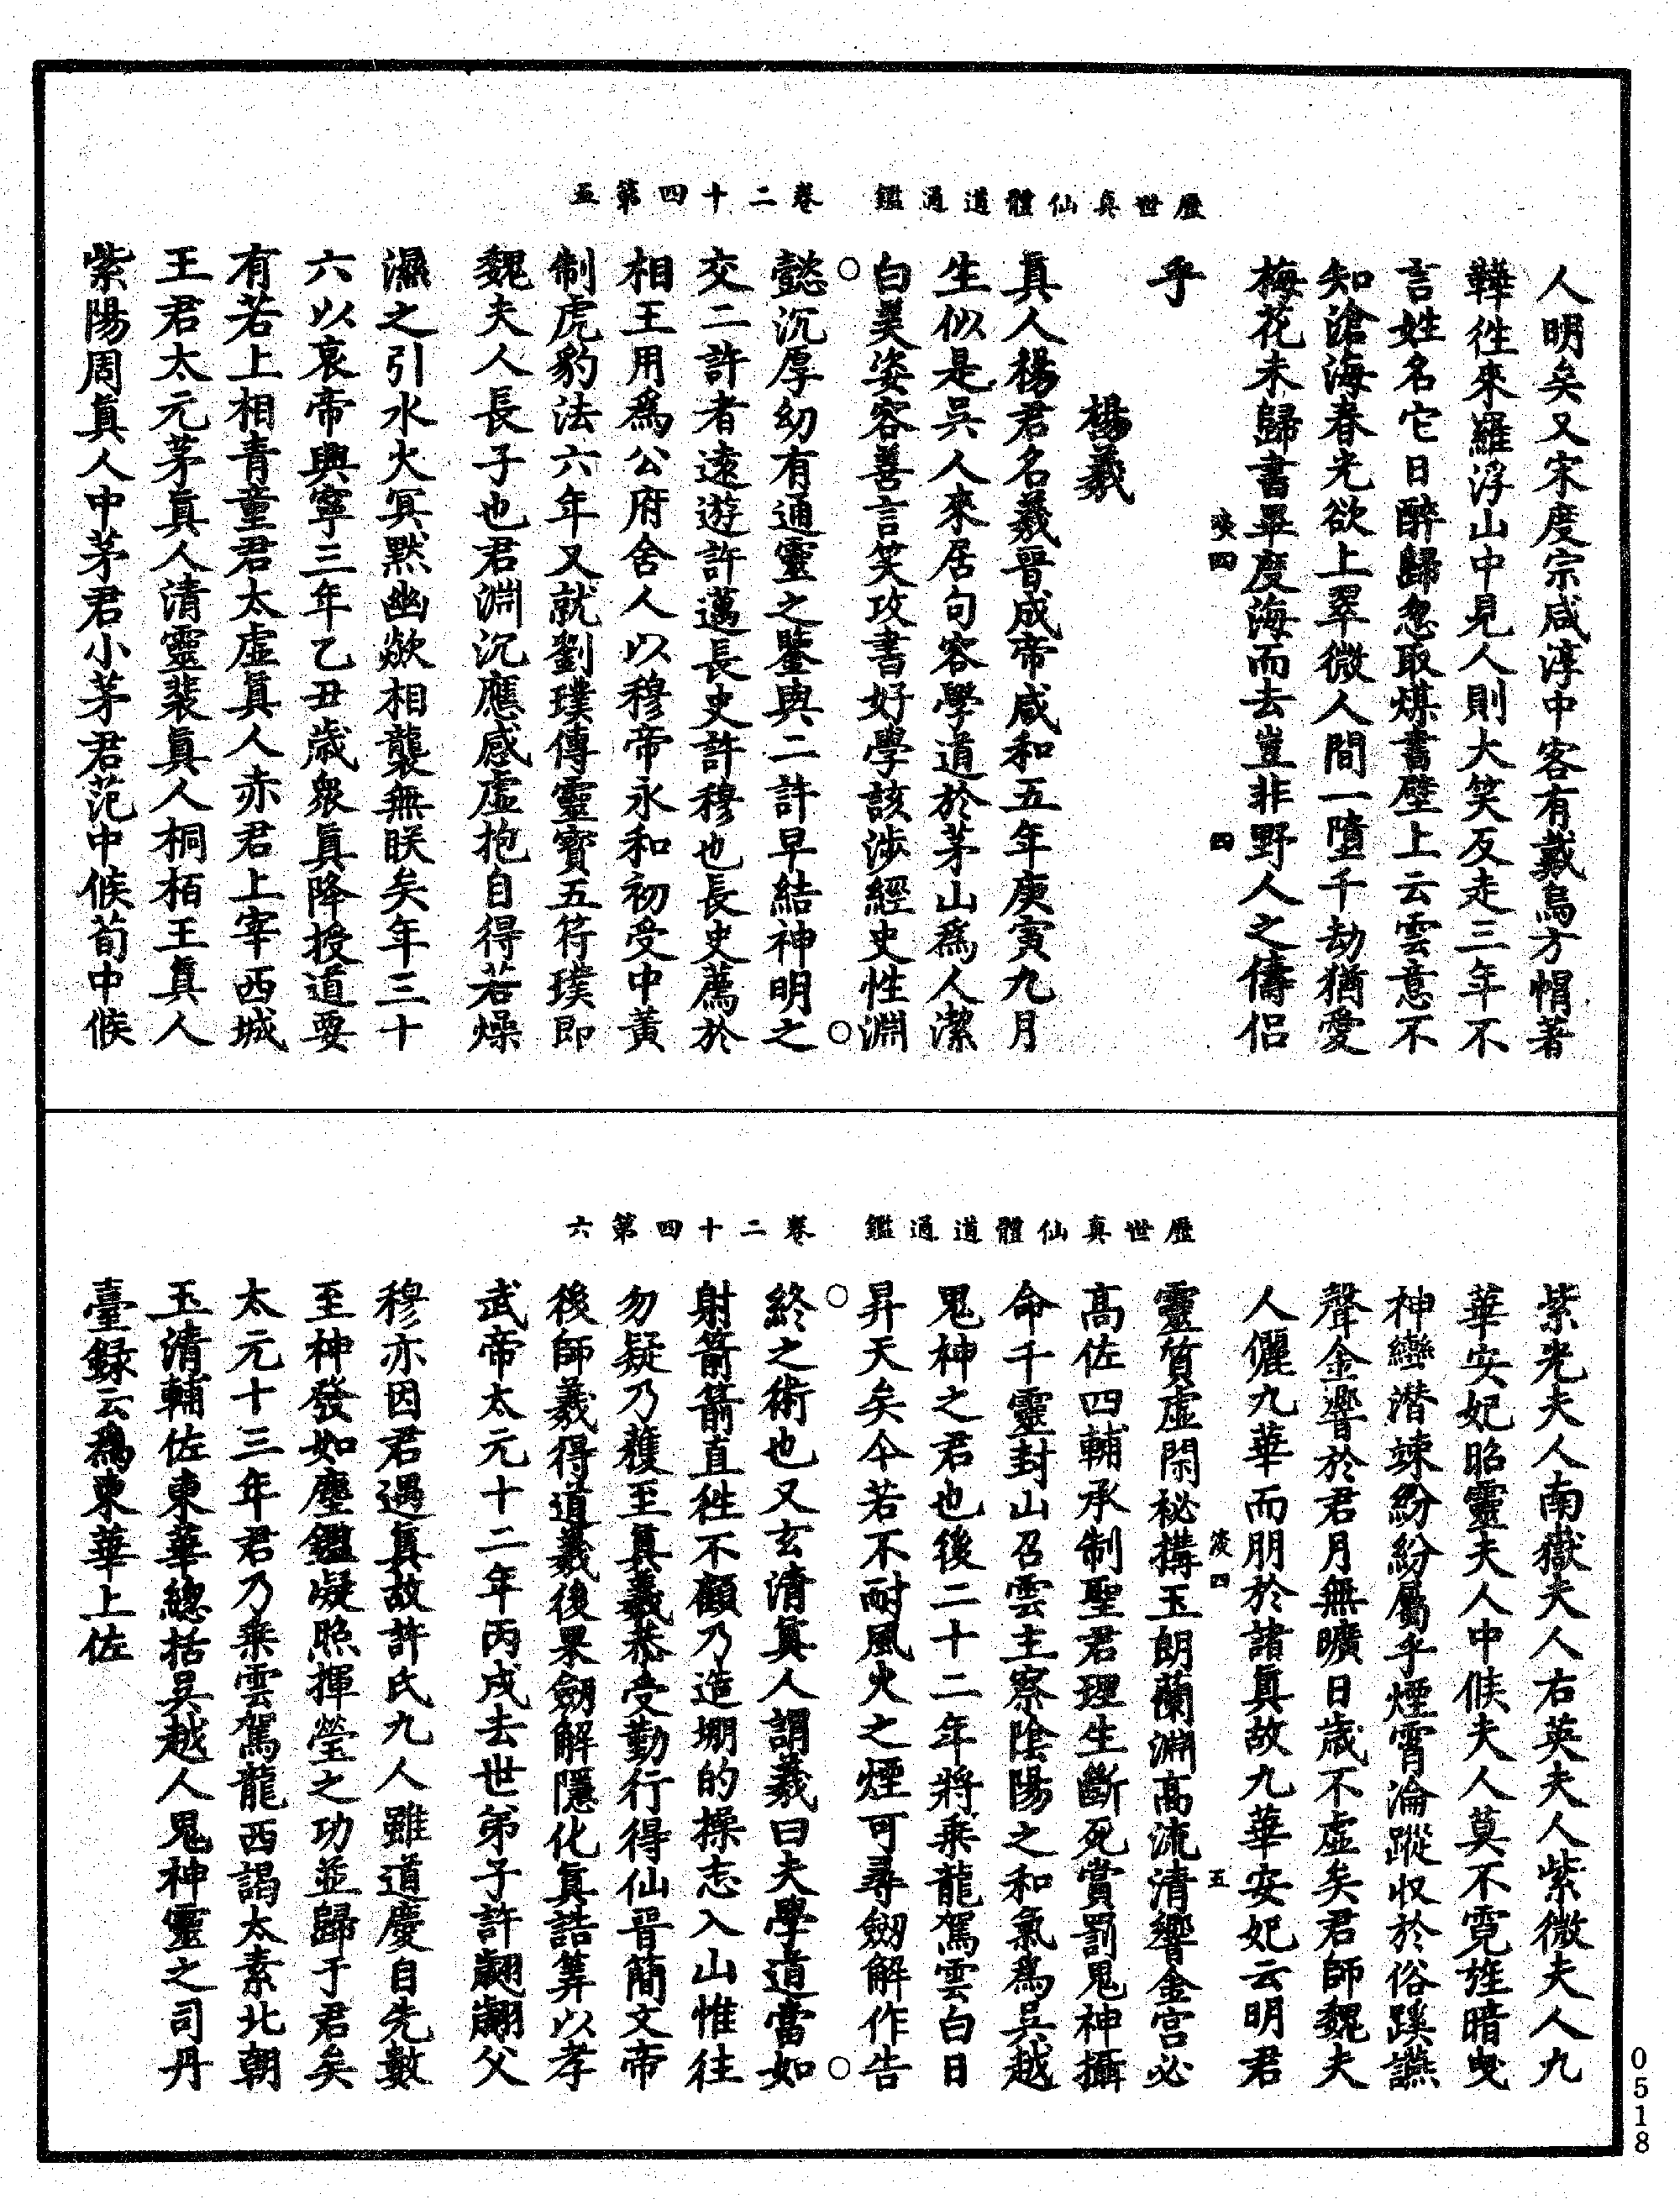 歷世真仙體道通鑑　卷二十四第五
人明矣又宋度宗咸淳中客有戴烏方帽著
鞾徃來羅浮山中見人則大笑反走三年不
言姓名它日醉歸忽取煤書壁上云雲意不
知滄海春光欲上翠微人間一墮千劫猶愛
梅花未歸書畢度海而去豈非野人之儔侣
四
四
乎
楊羲
真人楊君名羲晉成帝咸和五年庚寅九月
生似是吳人來居句容學道於茅山爲人潔
白美姿容善言笑攻書好學該涉經史性淵
懿沉厚幼有通靈之鑒與二許早結神明之
交二許者遠遊許邁長史許穆也長史薦於
相王用爲公府舍人以穆帝永和初受中黃
制虎豹法六年又就劉璞傳靈寳五符璞即
魏夫人長子也君淵沉應感虛抱自得若燥
濕之引水火冥黙幽歘相襲無眹矣年三十
六以哀帝興寧三年乙丑歲衆真降授道要
有若上相青童君太虛真人赤君上宰西城
王君太元茅真人清靈裴真人桐栢王真人
紫陽周真人中茅君小茅君范中候荀中候
歷世真仙體道通鑑　卷二十四第六
紫光夫人南嶽夫人右英夫人紫微夫人九
華安妃昭靈夫人中候夫人莫不霓旌暗曳
神轡潛竦紛紛屬乎煙霄淪蹤收於俗蹊讌
聲金響於君月無曠日歲不虛矣君師魏夫
人儷九華而朋於諸真故九華安妃云明君
四
五
靈質虛閑袐搆玉朗蘭淵高流清響金宮必
高佐四輔承制聖君理生斷死賞罰鬼神攝
命千靈封山召雲主察陰陽之和氣爲吳越
鬼神之君也後二十二年將乘龍駕雲白日
昇天矣今若不耐風火之煙可尋劒解作告
終之術也又玄清真人謂羲曰夫學道當如
射箭箭直徃不顧乃造堋的操志入山惟往
勿疑乃獲至真羲恭受勤行得仙晉簡文帝
後師羲得道羲後果劒解隱化真誥筭以孝
武帝太元十二年丙戌去世弟子許翽翽父
穆亦因君遇真故許氏九人雖道慶自先數
至神發如塵鑑凝照揮瑩之功並歸于君矣
太元十三年君乃乘雲駕龍西謁太素北朝
玉清輔佐東華總括吳越人鬼神靈之司丹
臺録云爲東華上佐
0518